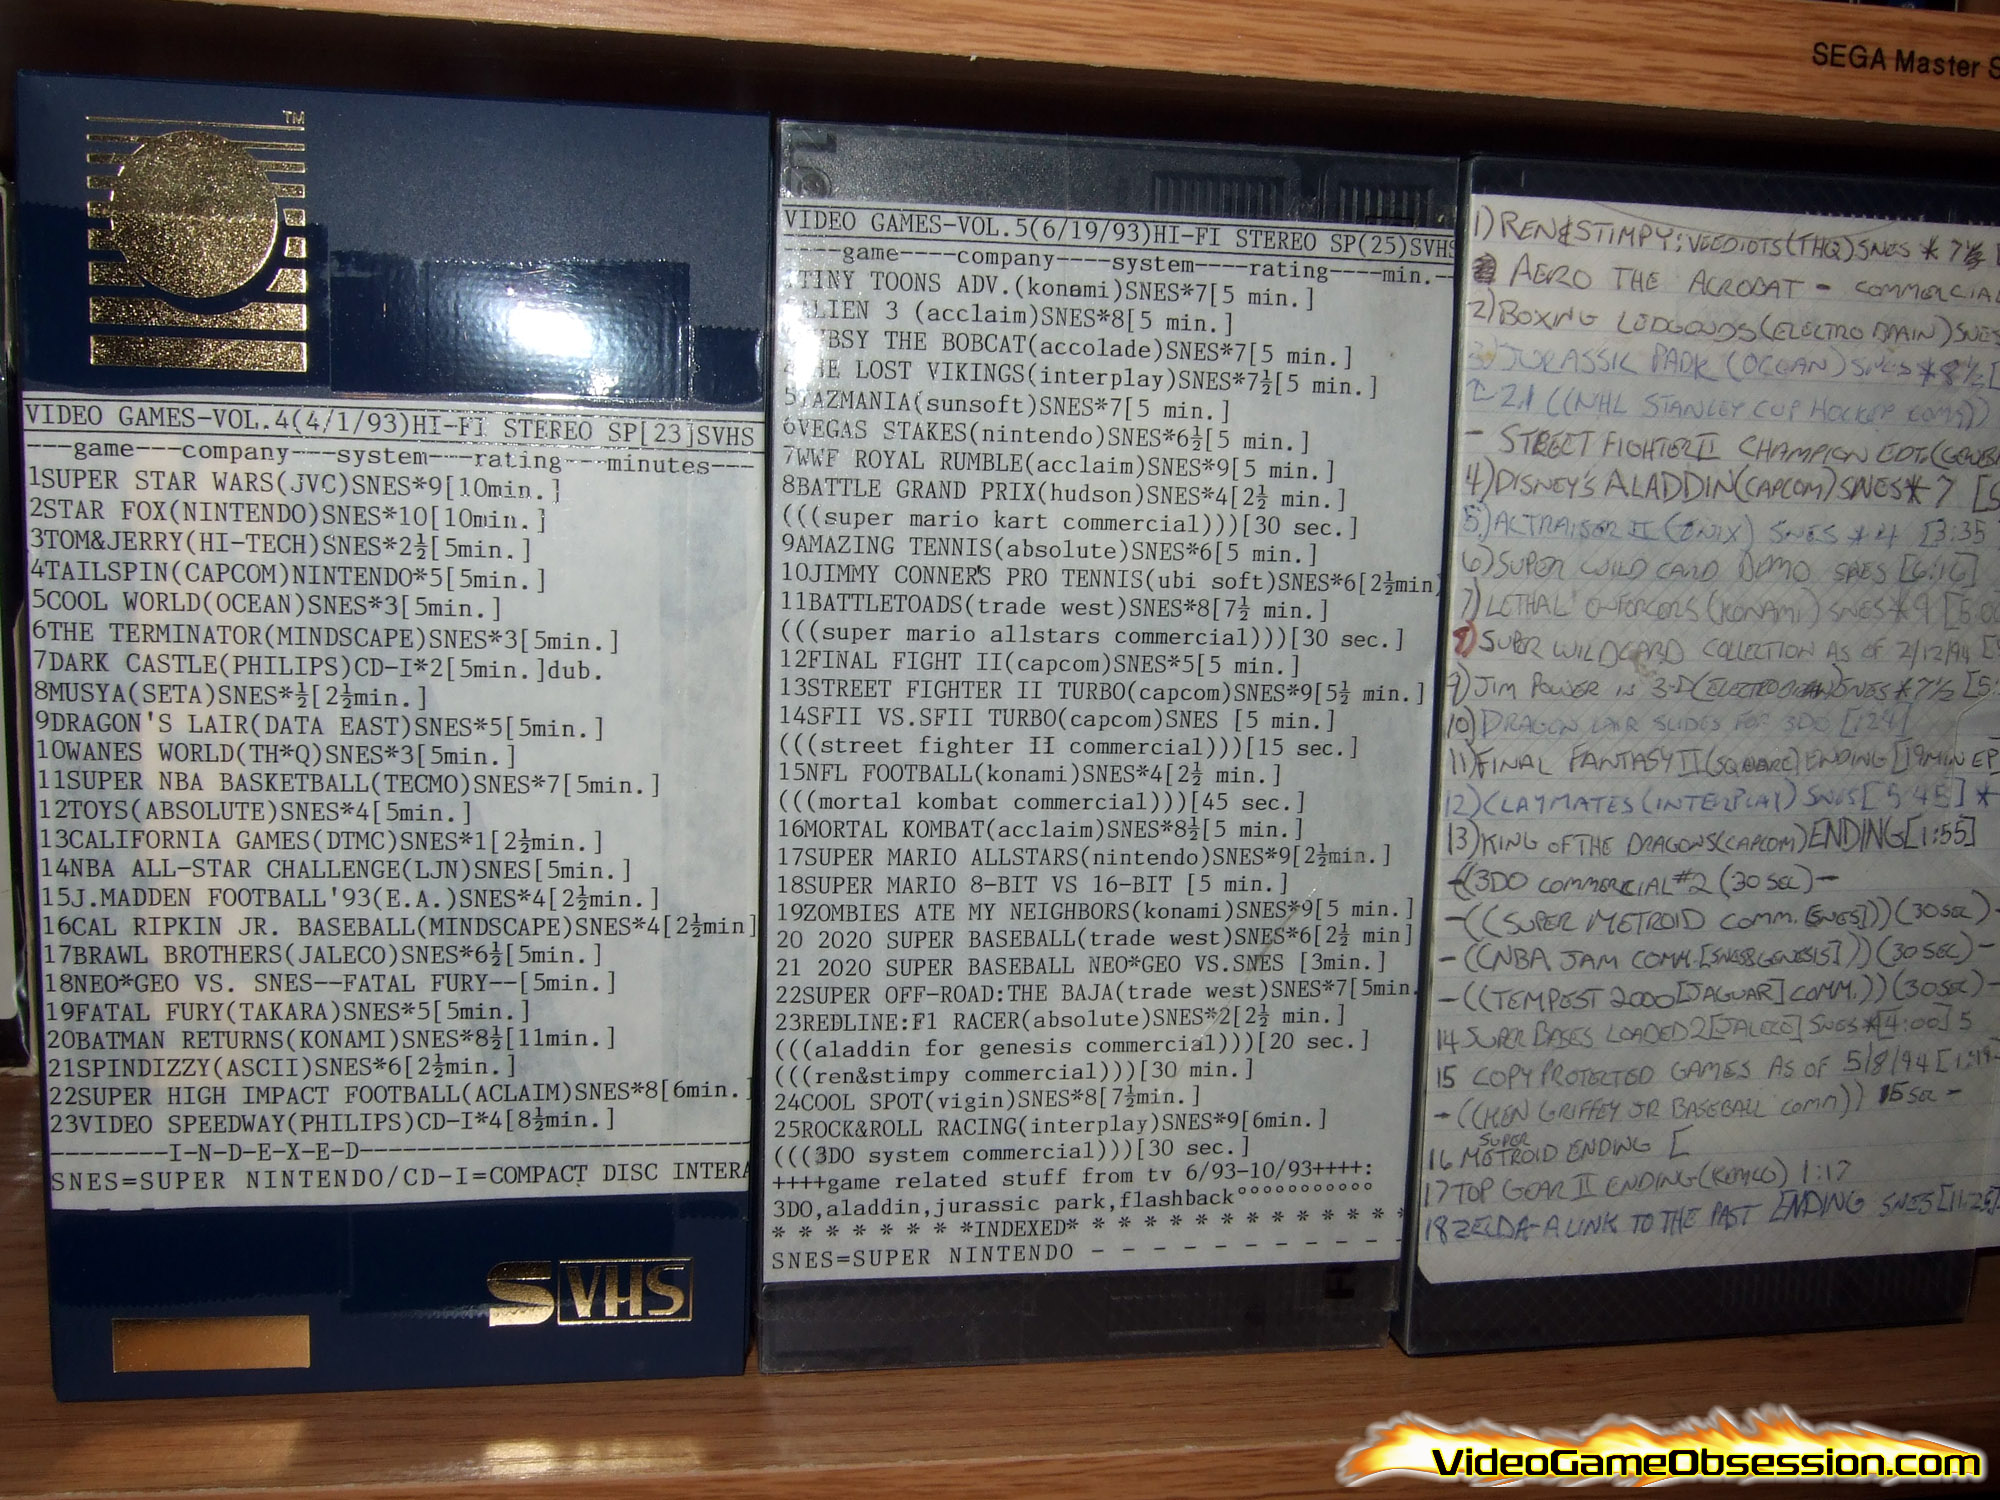 SEGA Master
TM
VIDEO GAMES-VOL.4(4/1/93)HI-FI STEREO SP[23]SVHS
---game---company---system---rating---minutes---
1SUPER STAR WARS(JVC)SNES*9[10min.]
2STAR FOX(NINTENDO)SNES*10[10min.]
3TOM&JERRY(HI-TECH)SNES*2½[5min.]
4TAILSPIN(CAPCOM)NINTENDO*5[5min.]
5COOL WORLD(OCEAN)SNES*3[5min.]
6THE TERMINATOR(MINDSCAPE)SNES*3[5min.]
7DARK CASTLE(PHILIPS)CD-I*2[5min.]dub.
8MUSYA(SETA)SNES*½[2½min.]
9DRAGON'S LAIR(DATA EAST)SNES*5[5min.]
10WANES WORLD(TH*Q)SNES*3[5min.]
11SUPER NBA BASKETBALL(TECMO)SNES*7[5min.]
12TOYS(ABSOLUTE)SNES*4[5min.]
13CALIFORNIA GAMES(DTMC)SNES*1[2½min.]
14NBA ALL-STAR CHALLENGE(LJN)SNES[5min.]
15J.MADDEN FOOTBALL'93(E.A.)SNES*4[2½min.]
16CAL RIPKIN JR. BASEBALL(MINDSCAPE)SNES*4[2½min]
17BRAWL BROTHERS(JALECO)SNES*6½[5min.]
18NEO*GEO VS. SNES--FATAL FURY--[5min.]
19FATAL FURY(TAKARA)SNES*5[5min.]
20BATMAN RETURNS(KONAMI)SNES*8½[11min.]
21SPINDIZZY(ASCII)SNES*6[2½min.]
22SUPER HIGH IMPACT FOOTBALL(ACLAIM)SNES*8[6min.]
23VIDEO SPEEDWAY(PHILIPS)CD-I*4[8½min.]
--------I-N-D-E-X-E-D--------------------------
SNES=SUPER NINTENDO/CD-I=COMPACT DISC INTERA
SVHS
VIDEO GAMES-VOL.5(6/19/93)HI-FI STEREO SP(25)SVHS
----game----company----system----rating----min.--
TINY TOONS ADV.(konami)SNES*7[5 min.]
LIEN 3 (acclaim)SNES*8[5 min.]
BSY THE BOBCAT(accolade)SNES*7[5 min.]
HE LOST VIKINGS(interplay)SNES*7½[5 min.]
5TAZMANIA(sunsoft)SNES*7[5 min.]
6VEGAS STAKES(nintendo)SNES*6½[5 min.]
7WWF ROYAL RUMBLE(acclaim)SNES*9[5 min.]
8BATTLE GRAND PRIX(hudson)SNES*4[2½ min.]
(((super mario kart commercial)))[30 sec.]
9AMAZING TENNIS(absolute)SNES*6[5 min.]
10JIMMY CONNER'S PRO TENNIS(ubi soft)SNES*6[2½min]
11BATTLETOADS(trade west)SNES*8[7½ min.]
(((super mario allstars commercial)))[30 sec.]
12FINAL FIGHT II(capcom)SNES*5[5 min.]
13STREET FIGHTER II TURBO(capcom)SNES*9[5½ min.]
14SFII VS.SFII TURBO(capcom)SNES [5 min.]
(((street fighter II commercial)))[15 sec.]
15NFL FOOTBALL(konami)SNES*4[2½ min.]
(((mortal kombat commercial)))[45 sec.]
16MORTAL KOMBAT(acclaim)SNES*8½[5 min.]
17SUPER MARIO ALLSTARS(nintendo)SNES*9[2½min.]
18SUPER MARIO 8-BIT VS 16-BIT [5 min.]
19ZOMBIES ATE MY NEIGHBORS(konami)SNES*9[5 min.]
20 2020 SUPER BASEBALL(trade west)SNES*6[2½ min]
21 2020 SUPER BASEBALL NEO*GEO VS.SNES [3min.]
22SUPER OFF-ROAD:THE BAJA(trade west)SNES*7[5min.
23REDLINE:F1 RACER(absolute)SNES*2[2½ min.]
(((aladdin for genesis commercial)))[20 sec.]
(((ren&stimpy commercial)))[30 min.]
24COOL SPOT(vigin)SNES*8[7½min.]
25ROCK&ROLL RACING(interplay)SNES*9[6min.]
(((3DO system commercial)))[30 sec.]
++++game related stuff from tv 6/93-10/93++++:
3DO,aladdin,jurassic park,flashback°°°°°°°°°°°
* * * * * * * *INDEXED* * * * * * * * * * * * *
SNES=SUPER NINTENDO - - - - - - - - - - - -
1) REN&STIMPY: VEEDIOTS(THQ) SNES * 7½
AERO THE ACROBAT - COMMERCIAL
2) BOXING LEDGONDS(ELECTRO BRAIN) SNES
3) JURASSIC PARK (OCEAN) SNES * 8½ [
2.1 ((NHL STANLEY CUP HOCKEY COMM))
- STREET FIGHTER II CHAMPION EDT.
4) DISNEY'S ALADDIN(CAPCOM) SNES * 7 [5
5) ACTRAISER II (ENIX) SNES * 4 [3:35
6) SUPER WILD CARD DEMO SNES [6:16]
7) LETHAL ENFORCERS (KONAMI) SNES * 9 [6:00
8) SUPER WILDCARD COLLECTION AS OF 2/12/94
9) JIM POWER IN 3-D SNES * 7½ [5:
10) DRAGON LAIR SLIDES FOR 3DO [1:24]
11) FINAL FANTASY II (SQUARE) ENDING [19MIN EP]
12) CLAYMATES (INTERPLAY) SNES [5:45] *
13) KING OF THE DRAGONS(CAPCOM) ENDING [1:55]
-(3DO COMMERCIAL #2 (30 SEC)-
-((SUPER METROID COMM. [SNES]))(30SEC)-
-((NBA JAM COMM.[SNES&GENESIS]))(30 SEC)-
-((TEMPEST 2000[JAGUAR] COMM.))(30SEC)-
14 SUPER BASES LOADED 2 [JALECO] SNES*[4:00] 5
15 COPY PROTECTED GAMES AS OF 5/8/94 [1:19
-((KEN GRIFFEY JR BASEBALL COMM)) 15 SEC -
16 SUPER METROID ENDING [
17 TOP GEAR II ENDING (KEMCO) 1:17
18 ZELDA-A LINK TO THE PAST ENDING SNES [11:25]
VideoGameObsession.com